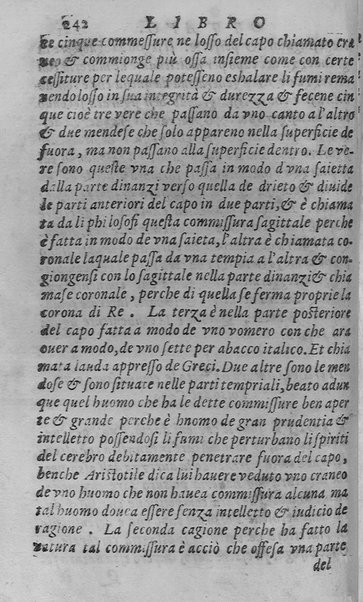 242 LIBRO
te cinque commessure ne losso del capo chiamato cra
neo & commionge più ossa insieme come con certe
cessiture per lequale potesseno eshalare li fumi rema
nendo losso in sua integrità & durezza & fecene cin
que cioè tre vere che passano da vno canto a l'altro
& due mendese che solo appareno nella superficie de
fuora, ma non passano alla superficie dentro. Le ve-
re sono queste vna che passa in modo d'vna saietta
dalla parte dinanzi verso quella de drieto & diuide
le parti anteriori del capo in due parti, & è chiama
ta da li philosofi questa commissura sagittale perche
è fatta in modo de vna saieta, l'altra è chiamata co-
ronale laquale passa da vna tempia a l'altra & con-
giongensi con lo sagittale nella parte dinanzi & chia
mase coronale, perche di quella se ferma proprie la
corona di Re. La terza è nella parte posteriore
del capo fatta a modo de vno vomero con che ara
ouer a modo, de vno sette per abacco italico. Et chia
mata lauda appresso de Greci. Due altre sono le men
dose & sono situate nelle parti tempriali, beato adun
que quel huomo che ha le dette commissure ben aper
te & grande perche è hnomo de gran prudentia &
intelletto possendosi li fumi che perturbano li spiriti
del cerebro debitamente penetrare fuora del capo,
benche Aristotile dica lui hauere veduto vno craneo
de vno huomo che non hauea commissura alcuna ma
tal huomo douea essere senza intelletto & iudicio de
ragione. La seconda cagione perche ha fatto la
natura tal commissura è acciò che offesa vna parte
del